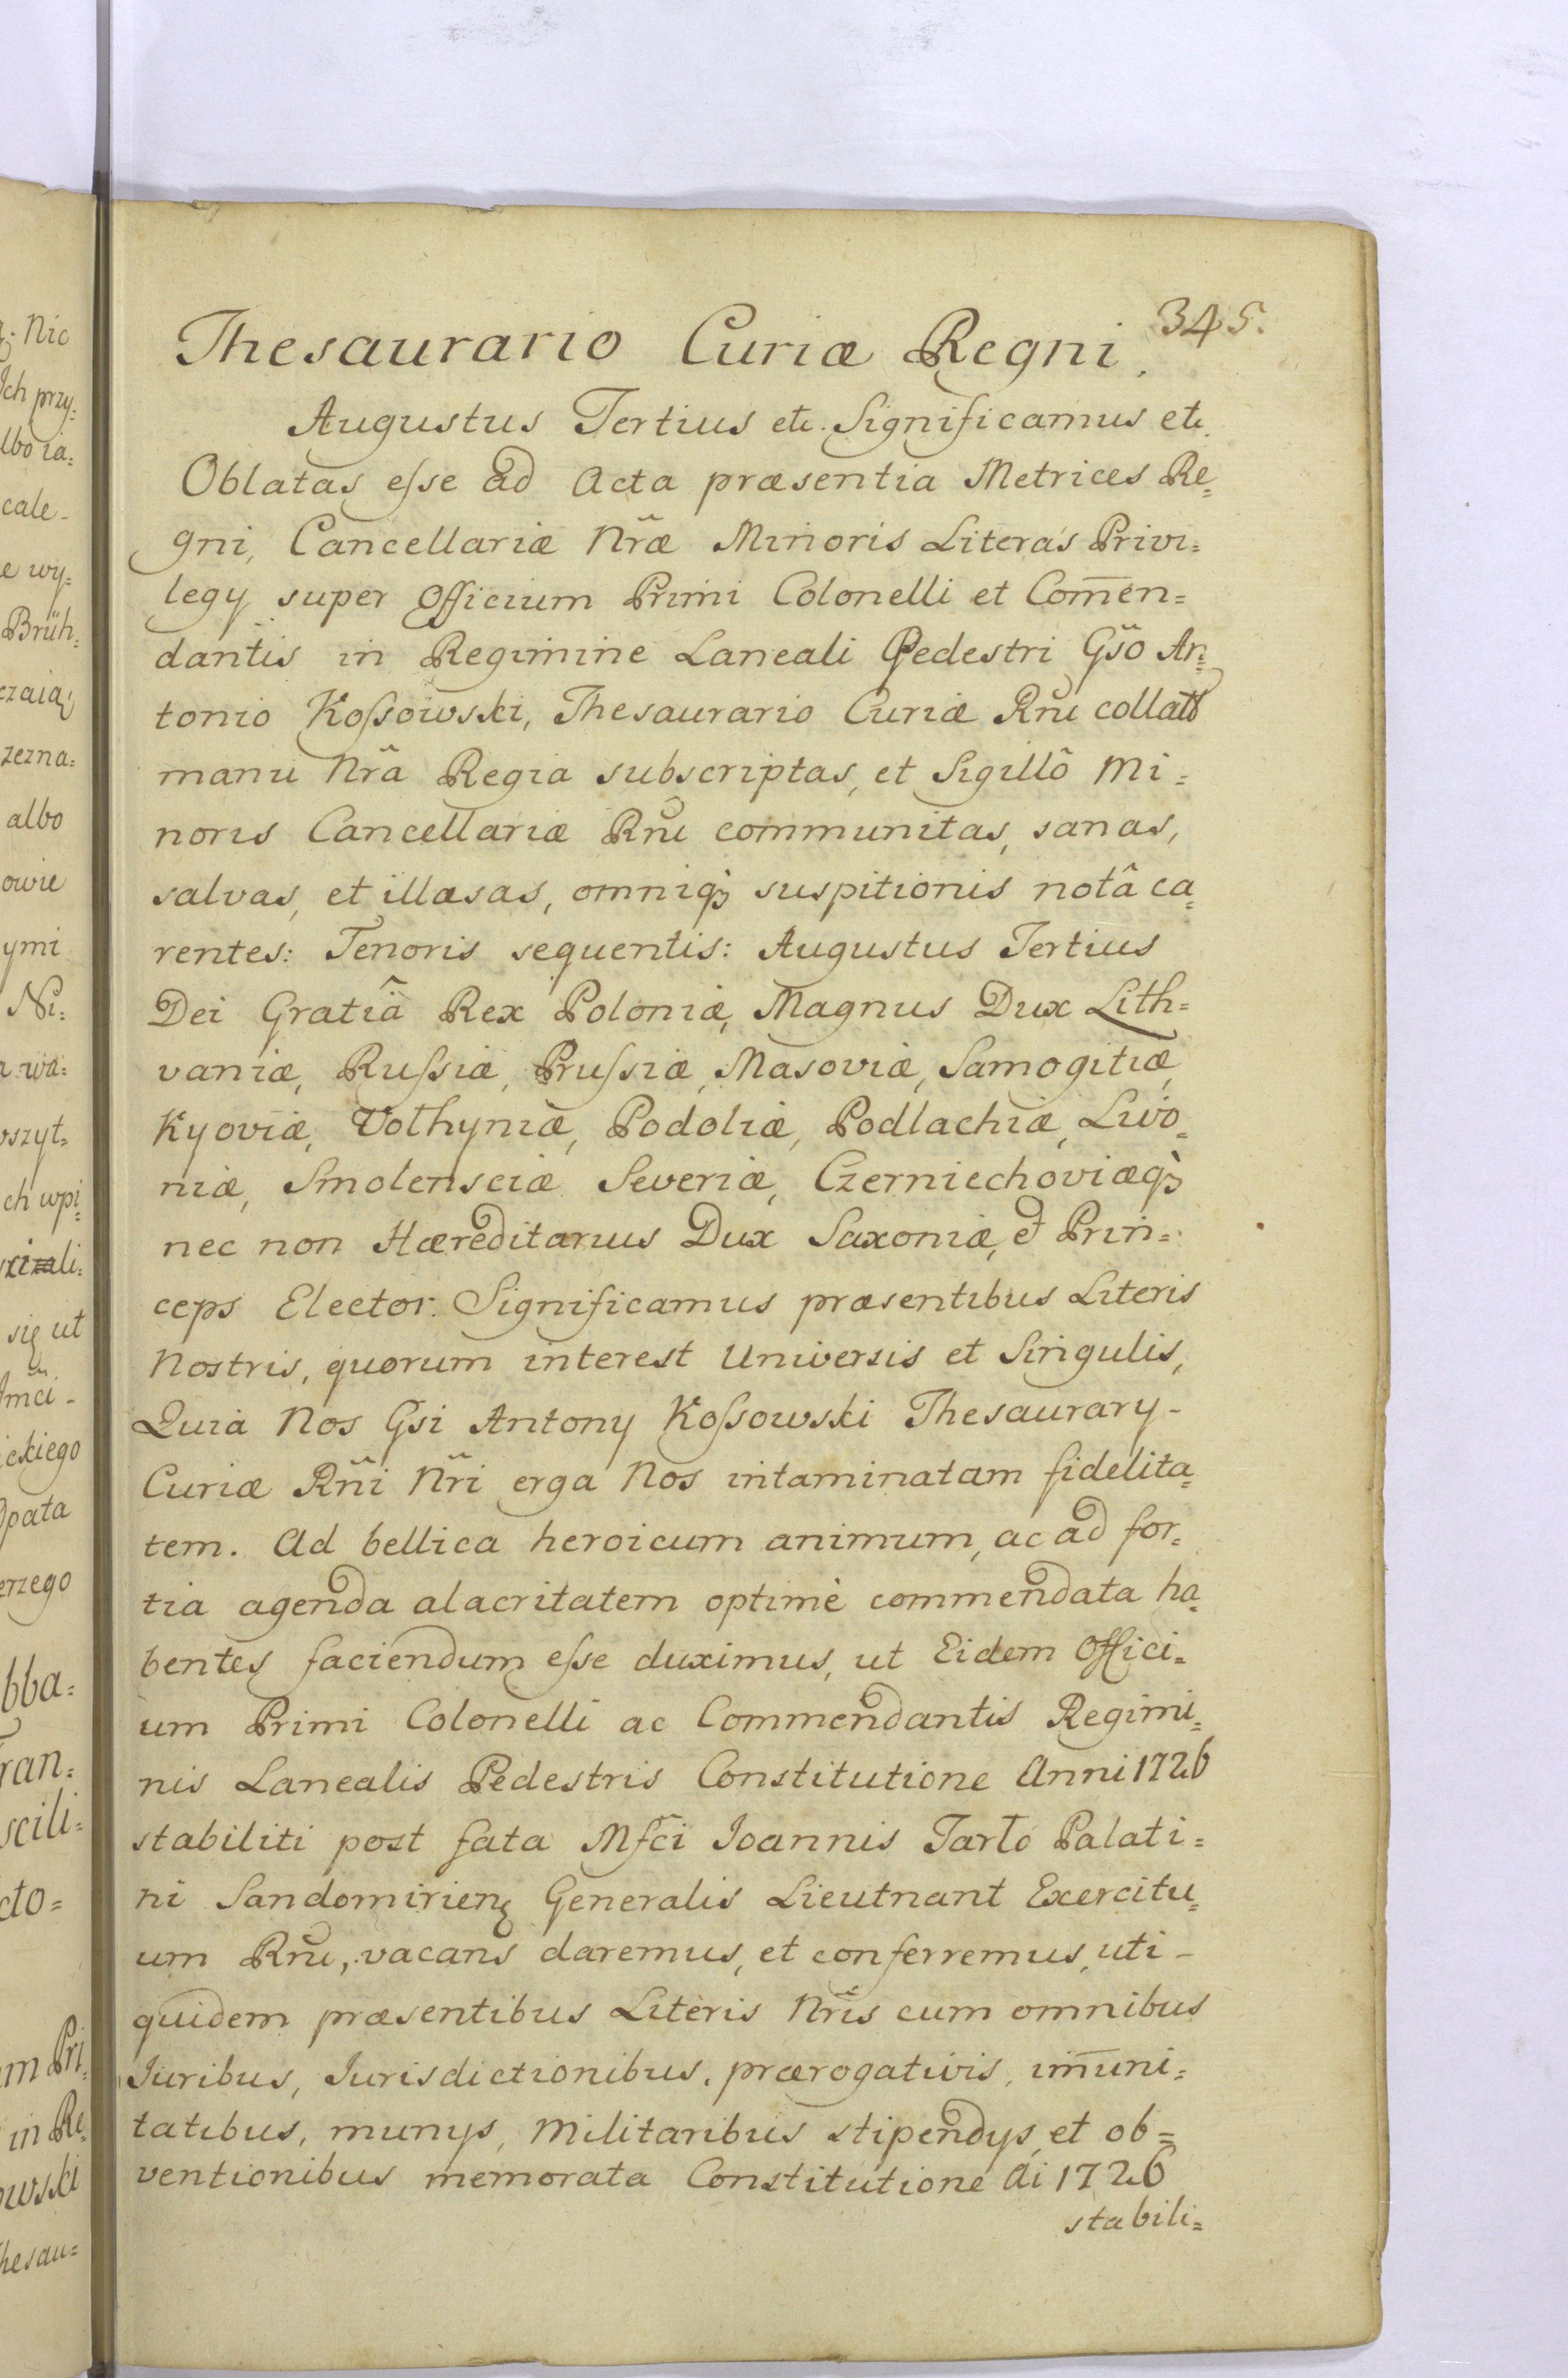 345.
Thesaurario Curiæ Regni.
Augustus Tertius etc. Significamus etc.
Oblatas eſse ad Acta præsentia Metrices Re=
gni, Cancellariæ Nr̃æ Minoris Literas Privi=
legÿ super Officium Primi Colonelli et Com̃en=
dantis in Regimine Laneali Pedestri Gs̃o An=
tonio Koſsowski, Thesaurario Curiæ Rñi collatas
manu Nr̃a Regia subscriptas, et Sigillô Mi=
noris Cancellariæ Rñi communitas, sanas,
salvas, et illæsas, omniqꝫ suspitionis notâ ca=
rentes: Tenoris sequentis: Augustus Tertius
Dei Gratiâ Rex Poloniæ, Magnus Dux Lith=
vaniæ, Ruſsiæ, Pruſsiæ, Masoviæ, Samogitiæ,
Kyoviæ, Volhyniæ, Podoliæ, Podlachiæ, Livo=
niæ, Smolensciæ Severiæ, Czerniechoviæqꝫ
nec non Hæreditarius Dux Saxoniæ, et Prin=
ceps Elector. Significamus præsentibus Literis
Nostris, quorum interest Universis et Singulis,
Quia Nos Gsi Antony Koſsowski Thesaurary-
Curiæ Rñi Nr̃i erga Nos intaminatam fidelita=
tem. Ad bellica heroicum animum, ac ad for=
tia agenda alacritatem optimè commendata ha=
bentes faciendum eſse duximus, ut Eidem Offici=
um Primi Colonelli ac Commendantis Regimi=
nis Lanealis Pedestris Constitutione Anni 1726
stabiliti post fata Mfc̃i Ioannis Tarło Palati=
ni Sandomirien̨ Generalis Lieutnant Exercitu=
um Rñi, vacans daremus, et conferremus, uti-
quidem præsentibus Literis Nr̃is cum omnibus
Iuribus, Iurisdictionibus, prærogativis, im̃uni=
tatibus, munÿs, Militaribus stipendÿs, et ob=
ventionibus memorata Constitutione Ai 1726
stabili=